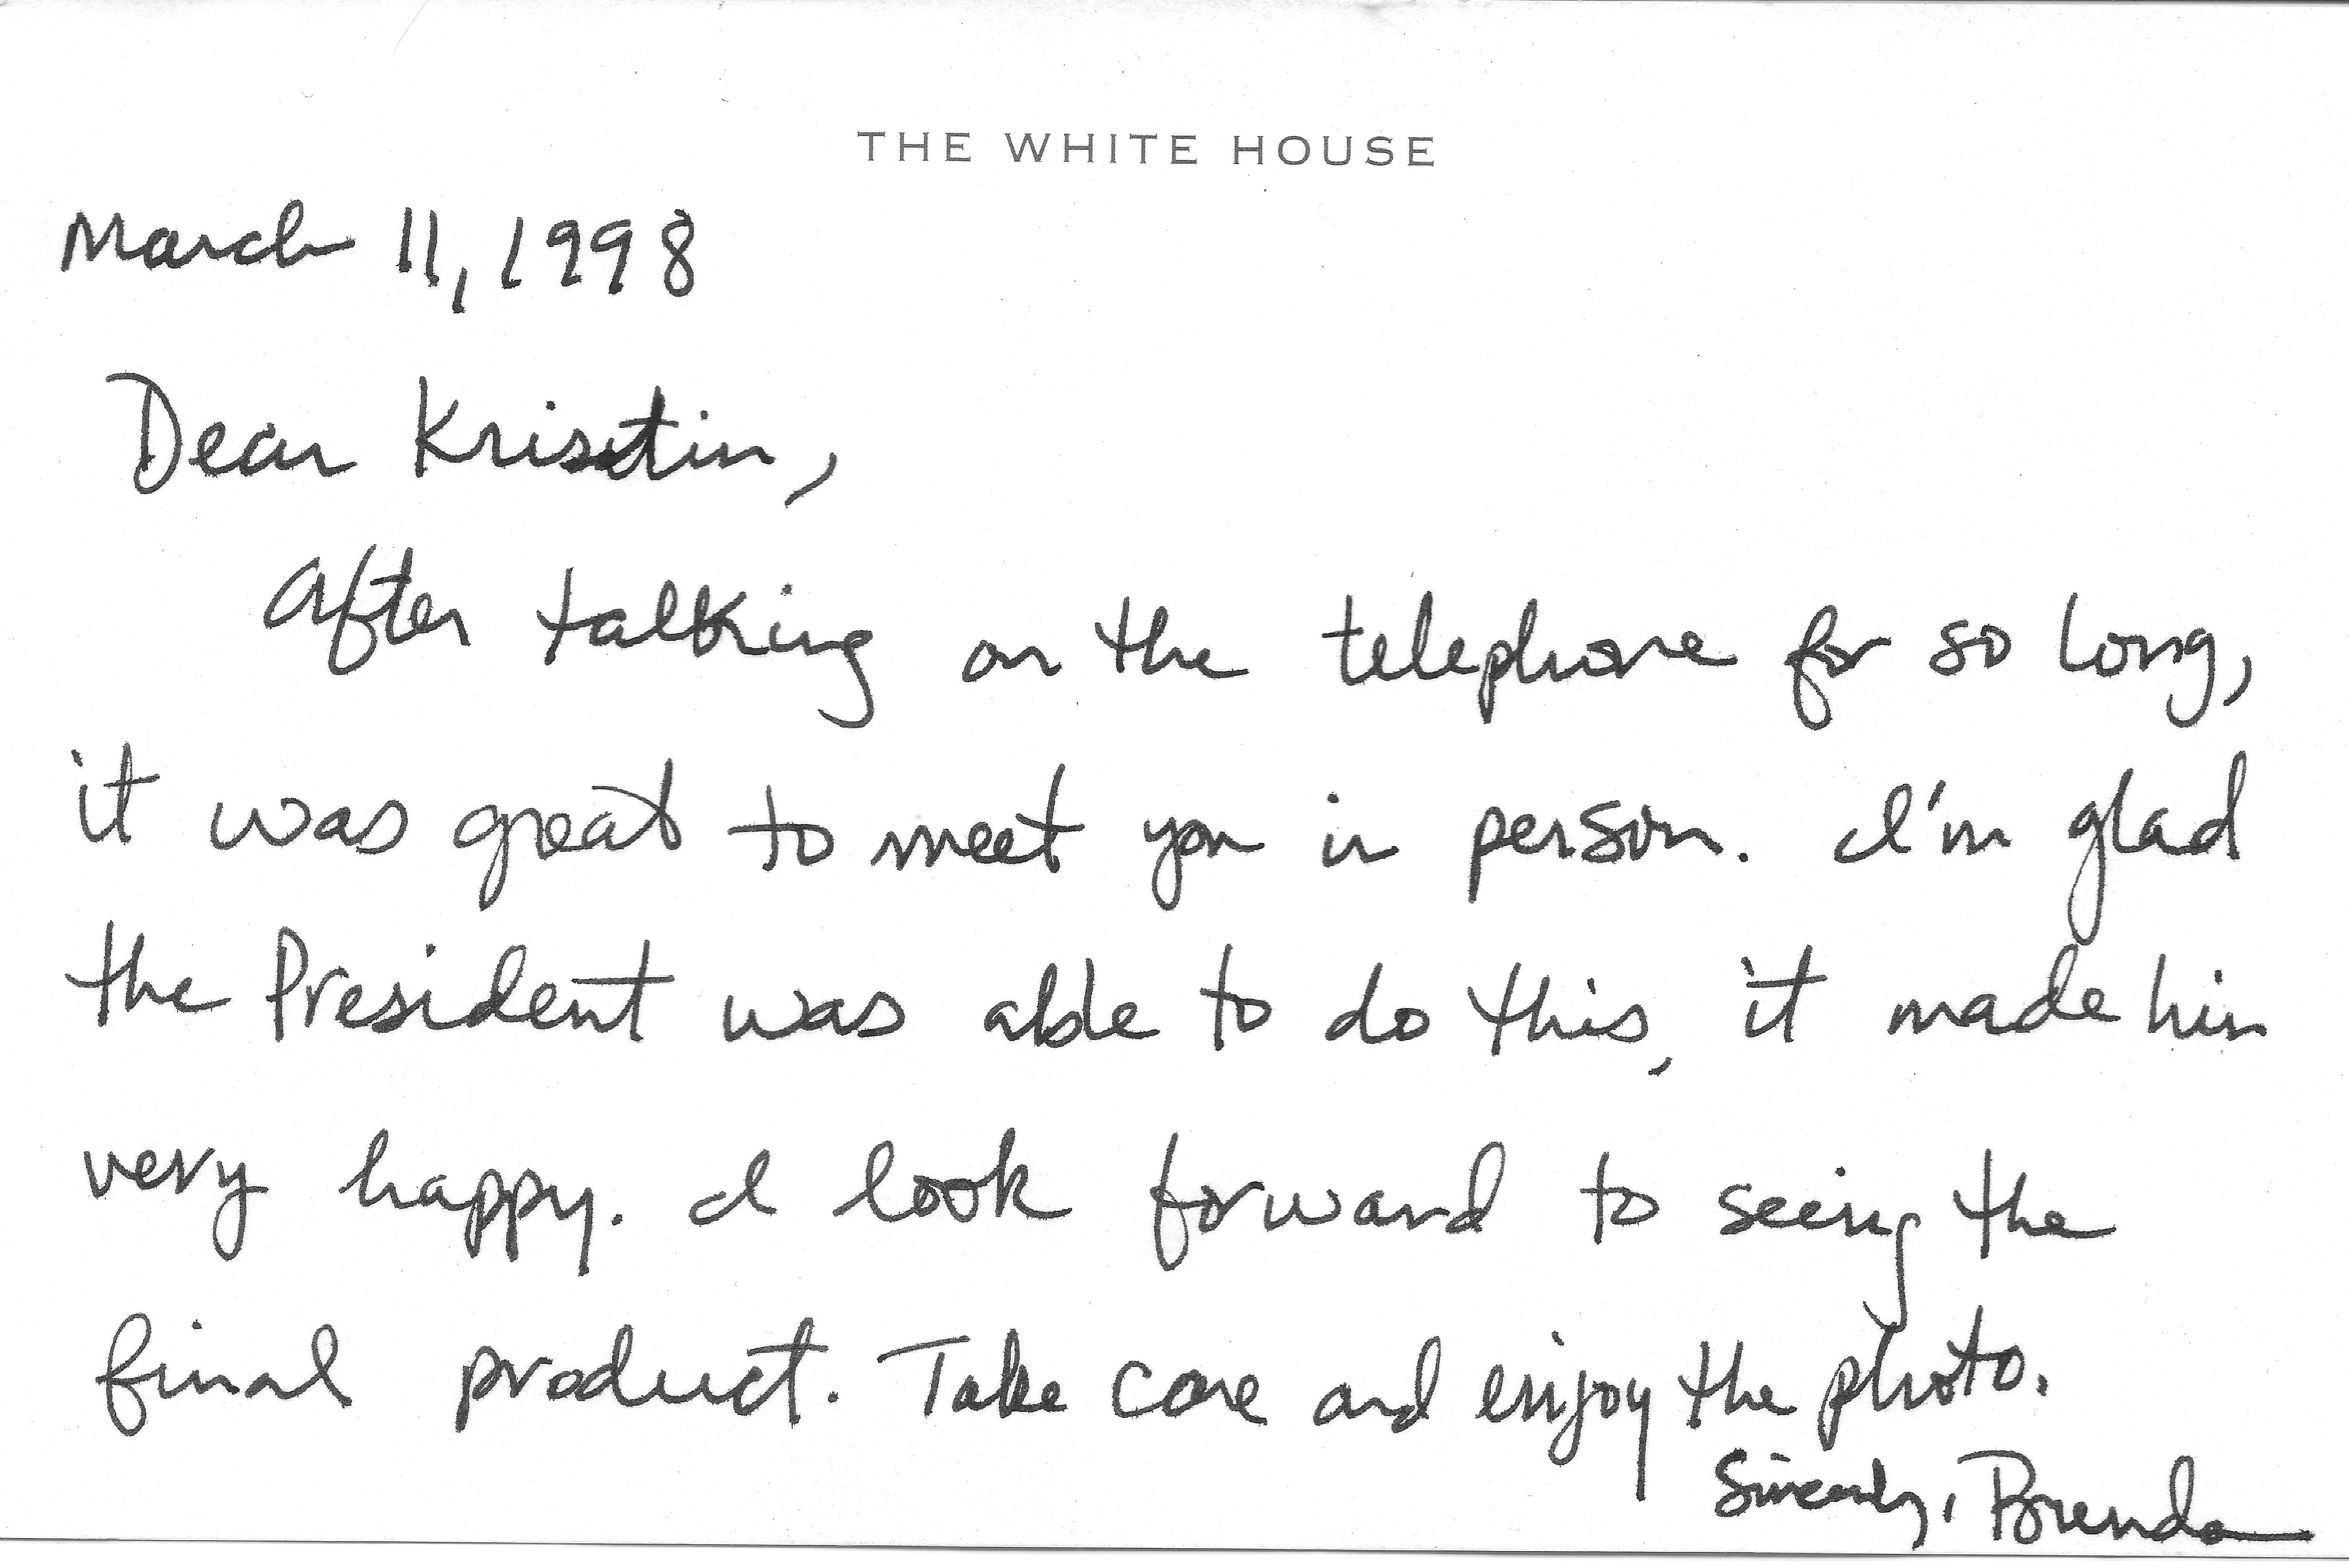 THE WHITE HOUSE
March 11, 1998
Dear Kristin,
After talking on the telephone for so long,
it was great to meet you in person. I'm glad
the President was able to do this, it made him
very happy. I look forward to seeing the
final product. Take care and enjoy the photo.
Sincerely, Brenda